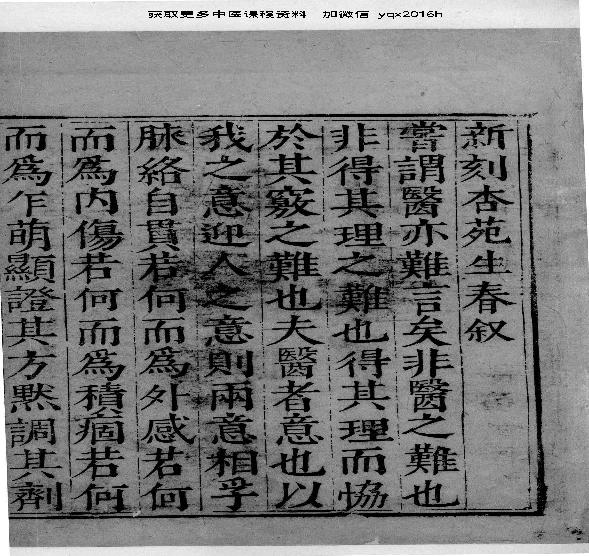 获取更多中医课程资料 加微信 yqx2016h
新刻杏苑生春叙
嘗謂醫亦難言矣非醫之難也
非得其理之難也得其理而恊
於其竅之難也夫醫者意也以
我之意迎人之意則兩意相孚
脉絡自貫若何而為外感若何
而為内傷若何而為積痼若何
而為乍萌顯證其方黙調其劑